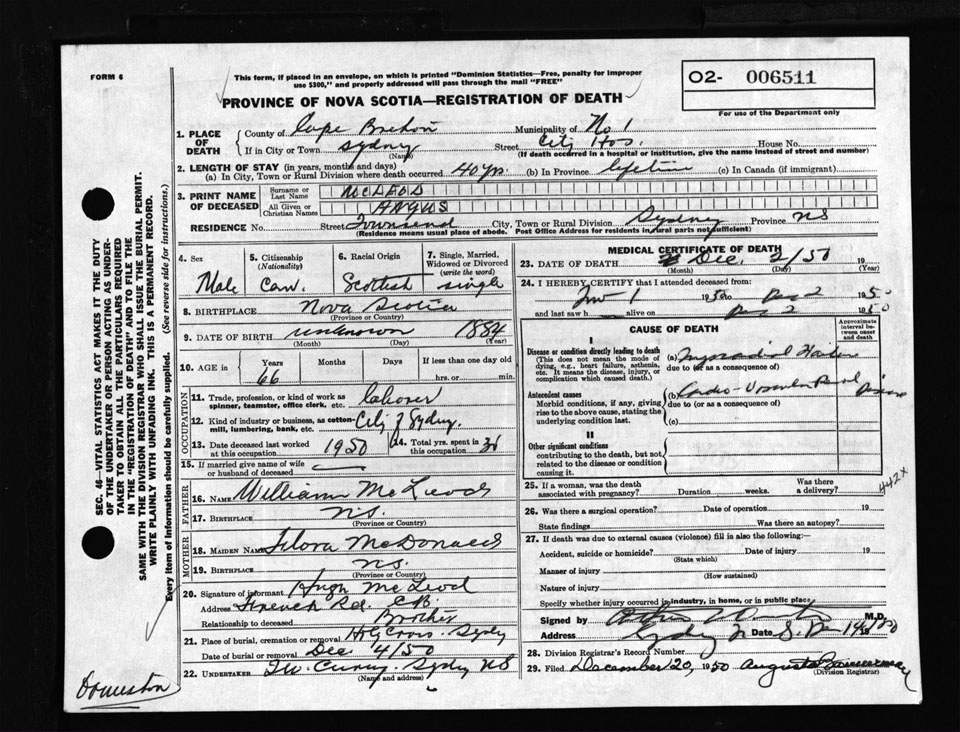 FORM 6
This form, if placed in an envelope, on which is printed "Dominion Statistics—Free, penalty for improper
use $300," and properly addressed will pass through the mail "FREE"
O2- 006511
For use of the Department only.
PROVINCE OF NOVA SCOTIA—REGISTRATION OF DEATH
SEC. 46—VITAL STATISTICS ACT MAKES IT THE DUTY
OF THE UNDERTAKER OR PERSON ACTING AS UNDER-
TAKER TO OBTAIN ALL THE PARTICULARS REQUIRED
IN THE "REGISTRATION OF DEATH" AND TO FILE THE
SAME WITH THE DIVISION REGISTRAR WHO SHALL ISSUE THE BURIAL PERMIT.
WRITE PLAINLY WITH UNFADING INK. THIS IS A PERMANENT RECORD.
Every item of information should be carefully supplied. (See reverse side for instructions.)
1. PLACE OF DEATH
County of Cape Breton Municipality of No 1
If in City or Town Sydney Street City Hos. House No.
(Name) (If death occurred in a hospital or institution, give the name instead of street and number)
2. LENGTH OF STAY (in years, months and days)
(a) In City, Town or Rural Division where death occurred 40 yrs. (b) In Province lifetime (c) In Canada (if immigrant)
3. PRINT NAME OF DECEASED
Surname or Last Name MCLEOD
All Given or Christian Names ANGUS
RESIDENCE No. Street Townsend City, Town or Rural Division Sydney Province NS
(Residence means usual place of abode. Post Office Address for residents in rural parts not sufficient)
4. Sex Male
5. Citizenship (Nationality) Can.
6. Racial Origin Scottish
7. Single, Married, Widowed or Divorced (write the word) single
8. BIRTHPLACE Nova Scotia
(Province or Country)
9. DATE OF BIRTH unknown 1884
(Month) (Day) (Year)
10. AGE in Years 66 Months Days If less than one day old
hrs. or min.
OCCUPATION
11. Trade, profession, or kind of work as spinner, teamster, office clerk, etc. laborer
12. Kind of industry or business, as cotton-mill, lumbering, bank, etc. City of Sydney.
13. Date deceased last worked at this occupation 1950 14. Total yrs. spent in this occupation
15. If married give name of wife or husband of deceased
FATHER
16. NAME William McLeod
17. BIRTHPLACE N.S.
(Province or Country)
MOTHER
18. MAIDEN NAME Flora McDonald
19. BIRTHPLACE N.S.
(Province or Country)
20. Signature of informant Hugh McLeod
Address French Rd. C.B.
Relationship to deceased Brother
21. Place of burial, cremation or removal Sydney
Date of burial or removal Dec 4/50
22. UNDERTAKER Sydney NS
(Name and address)
MEDICAL CERTIFICATE OF DEATH
23. DATE OF DEATH Dec. 2/50 19
(Month) (Day) (Year)
24. I HEREBY CERTIFY that I attended deceased from:
1 1950 to Dec 2 1950
and last saw h alive on Dec 2 1950
CAUSE OF DEATH
Approximate interval between onset and death
I
Disease or condition directly leading to death
(This does not mean the mode of dying, e.g., heart failure, asthenia, etc. It means the disease, injury, or complication which caused death.)
(a) Myocardial Failure
due to (or as a consequence of)
Antecedent causes
Morbid conditions, if any, giving rise to the above cause, stating the underlying condition last.
(b) Cardio-Vascular Renal Disease
due to (or as a consequence of)
(c)
II
Other significant conditions
contributing to the death, but not related to the disease or condition causing it.
442X
25. If a woman, was the death associated with pregnancy? Duration weeks. Was there a delivery?
26. Was there a surgical operation? Date of operation 19
State findings Was there an autopsy?
27. If death was due to external causes (violence) fill in also the following:
Accident, suicide or homicide? Date of injury 19
(State which)
Manner of injury
(How sustained)
Nature of injury
Specify whether injury occurred in industry, in home, or in public place
Signed by M.D.
Address Sydney Date
28. Division Registrar's Record Number
29. Filed December 20, 1950 Bannerman
(Division Registrar)